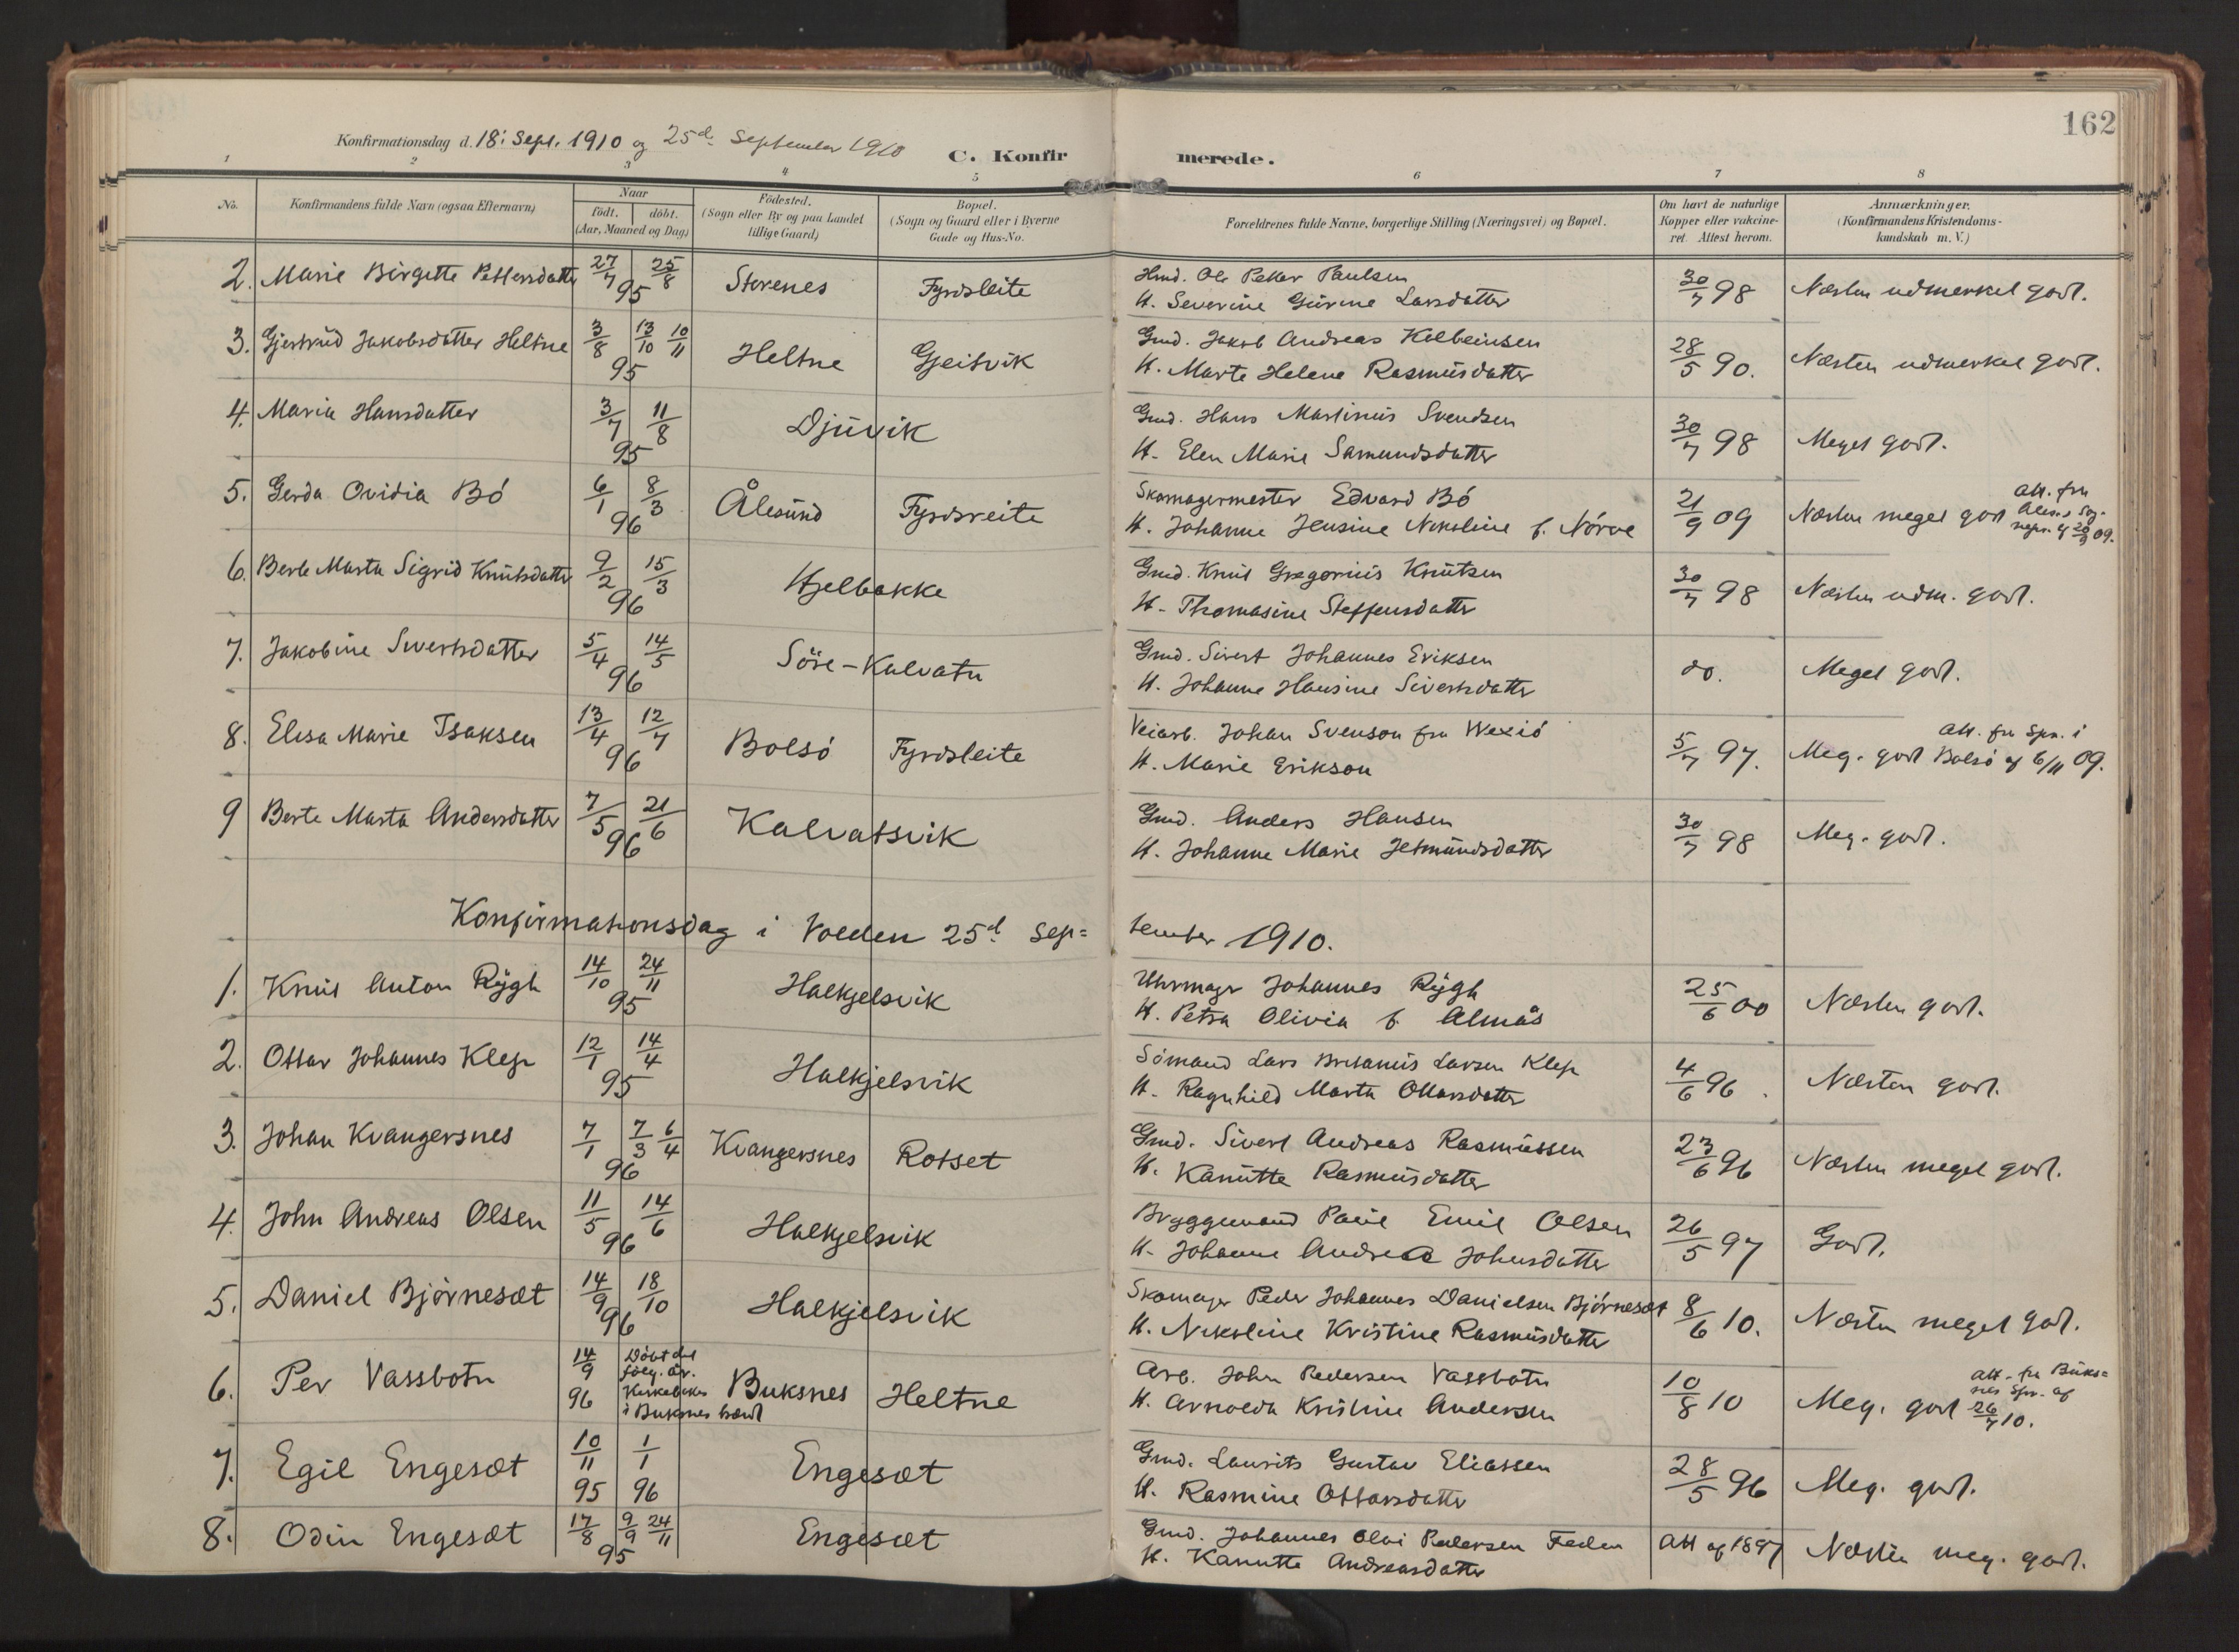 162
Konfirmationsdag d. 18. Sept. 1910 og 25d. September 1910
C. Konfirmerede.
1 2 3 4 5 6 7 8
No.
Konfirmandens fulde Navn (ogsaa Efternavn)
Naar
födt. döbt.
(Aar, Maaned og Dag)
Födested.
(Sogn eller By og paa Landet
tillige Gaard)
Bopæl.
(Sogn og Gaard eller i Byerne
Gade og Hus-No.
Forældrenes fulde Navne, borgerlige Stilling (Næringsvei) og Bopæl.
Om havt de naturlige
Kopper eller vakcine-
ret. Attest herom.
Anmærkninger.
(Konfirmandens Kristendoms-
kundskab m. V.)
2. Marie Birgette Pettersdatter 27/7 25/8 95 Stevenes Fyrdsleite Hmd. Ole Petter Paulsen 30/7 98 Næsten udmerket godt.
H. Severine Gurine Larsdatter
3. Gjertrud Jakobsdatter Heltne 3/8 13/10 10/11 95 Heltne Gjeitvik Gmd. Jakob Andreas Kolbeinsen 28/5 90. Næsten udmerket godt.
H. Marte Helene Rasmusdatter
4. Maria Hansdatter 3/7 11/8 95 Djuvik Gmd. Hans Martinus Svendsen 30/7 98 Meget godt.
H. Elen Marie Samundsdatter
5. Gerda Ovidia Bó 6/1 8/3 96 Ålesund Fyrdsreite Skomagermester Edvard Bó 21/9 09 Næsten meget godt Att. fra
H. Johanne Jensine Nikoline f. Nórve 09.
6. Berte Marta Sigrid Knutsdatter 9/2 15/3 96 Hjelbakke Gmd. Knut Gregorius Knutsen 30/7 98 Næsten udm. godt.
H. Thomasine Steffensdatter
7. Jakobine Sivertsdatter 5/4 14/5 96 Söre-Kalvatn Gmd. Sivert Johannes Eriksen do. Meget godt.
H. Johanne Hansine Sivertsdatter
8. Elisa Marie Isaksen 13/4 12/7 96 Bolsó Fyrdsleite Veiarb. Johan Svenson fra Wexió 5/7 97. Meg. godt Att. fra Spr. i
H. Marie Erikson Bolsó af 6/11 09.
9 Berte Marta Andersdatter 7/5 21/6 96 Kalvatsvik Gmd. Anders Hansen 30/7 98 Meg. godt.
H. Johanne Marie Jetmundsdatter
Konfirmationsdag i Volden 25d. September 1910.
1. Knut Anton Rygh 14/10 24/11 95 Halkjelsvik Uhrmager Johannes Rygh 25/6 00 Næsten godt.
H. Petra Olivia f. Almås
2. Ottar Johannes Klep 12/1 14/4 95 Halkjelsvik Sómand Lars Larsen Klep 4/6 96. Næsten godt.
H. Ragnhild Marta Ottarsdatter
3. Johan Kvangersnes 7/1 7/3 6/4 96 Kvangersnes Rotset Gmd. Sivert Andreas Rasmussen 23/6 96 Næsten meget godt.
H. Kanutte Rasmusdatter
4. John Andreas Olsen 11/5 14/6 96 Halkjelsvik Bryggemand Paul Emil Olsen 26/5 97 Godt.
H. Johanne Andrea Johnsdatter
5. Daniel Bjórnesæt 14/9 18/10 96 Halkjelsvik Skomager Peder Johannes Danielsen Bjórnesæt 8/6 10. Næsten meget godt.
H. Nikoline Kristine Rasmusdatter
6. Per Vassbotn 14/9 96 Dóbt det
fólg. år.
Kirkeboken
i Buksnes brændt
Buksnes Heltne Arb. John Pedersen Vassbotn 10/8 10 Meg. godt Att. fra Buks=
nes Spr. af
26/7 10.
H. Arnolda Kristine Andersen
7. Egil Engesæt 10/11 95 1/1 96 Engesæt Gmd. Laurits Gustav Eliassen 28/5 96 Meg. godt.
H. Rasmine Ottarsdatter
8. Odin Engesæt 17/8 9/9 24/11 95 Engesæt Gmd. Johannes Olai Pedersen Feden Att af 1897 Næsten meg. godt.
H. Kanutte Andreasdatter